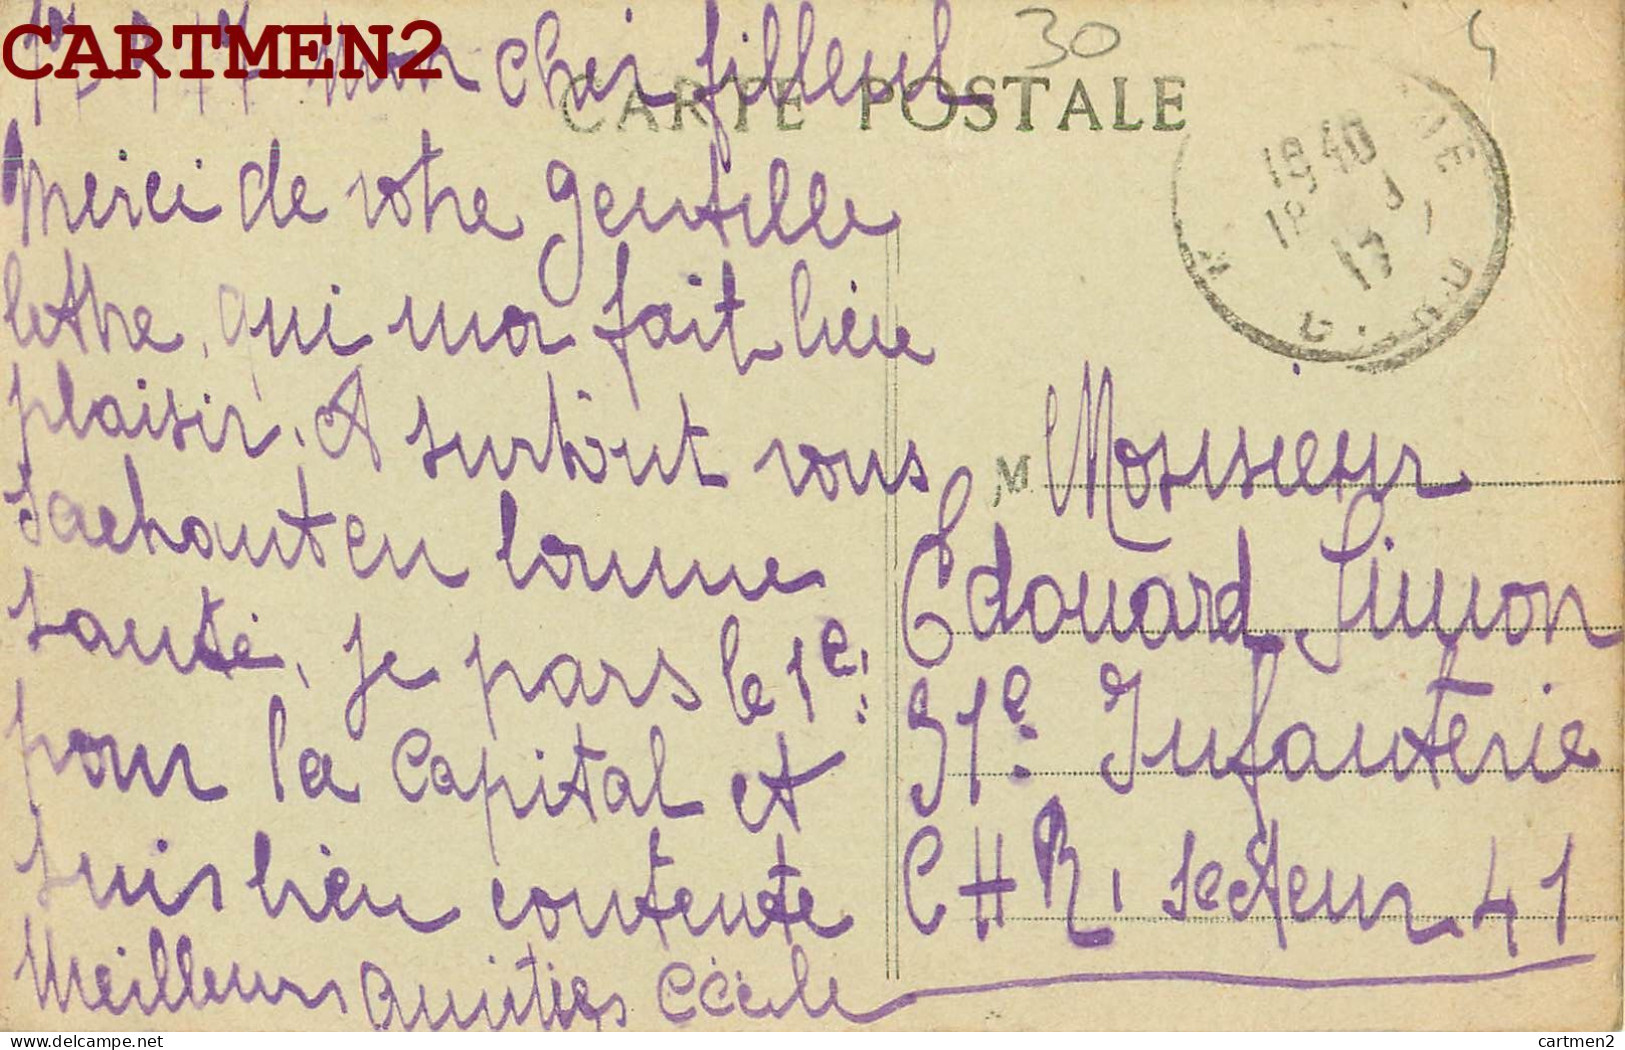 CARTMEN2
30
Mon cher filleul
CARTE POSTALE
Merci de votre gentille
lettre, qui ma fait bien
plaisir. A surtout vous
sachant en bonne
santé, je pars le 1e:
pour la Capital et
suis bien contente
Meilleurs amitiés Cécile
18 40
17
M Monsieur
Edouard Simon
91e: Infanterie
CHR, secteur 41
www.delcampe.net
cartmen2